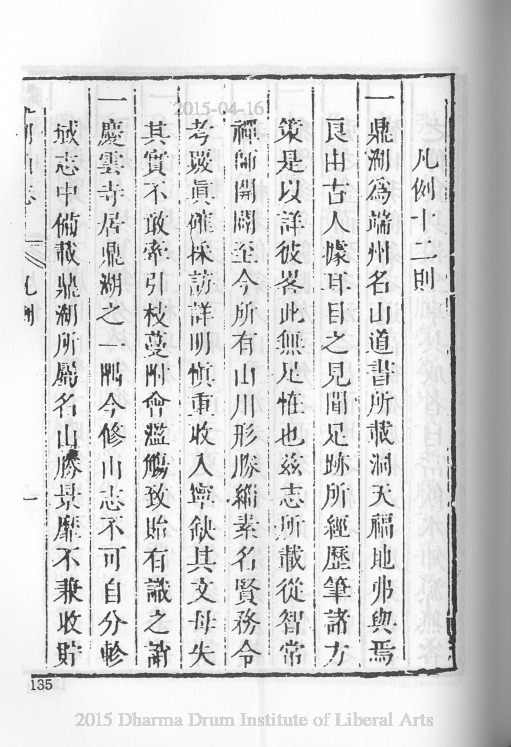 凡例十二則
一鼎湖為端州名山道書所載洞天福地弗與焉
良由古人據耳目之見聞足跡所經歷筆諸方
策是以詳彼畧此無足恠也茲志所載從智常
禪師開闢至今所有山川形勝緇素名賢務令
考覈眞確採訪詳明慎重收入寧缺其文毋失
其實不敢牽引枝蔓附會濫觴致貽有識之誚
一慶雲寺居鼎湖之一隅今修山志不可自分畛
域志中備載鼎湖所屬名山勝景靡不兼收貯
一
135
2015-04-16
2015 Dharma Drum Institute of Liberal Arts